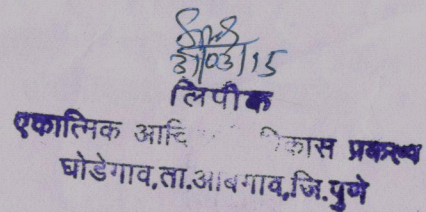 3/03/15
लिपीक
एकात्मिक आदि विकास प्रकल्प
घोडेगाव,ता.आंबेगाव,जि.पुणे